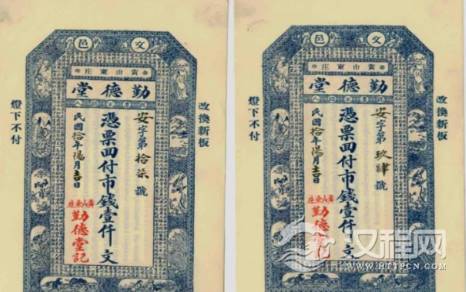 文邑
山東庄
勤德堂
改換新板
安字第拾柒號
憑票囬付市錢壹仟文
民國拾年陽月吉日
勤德堂記
燈下不付
文邑
山東庄
勤德堂
改換新板
安字第玖肆號
憑票囬付市錢壹仟文
民國拾年陽月吉日
勤德堂記
燈下不付
汉程网
HTTPCN.COM